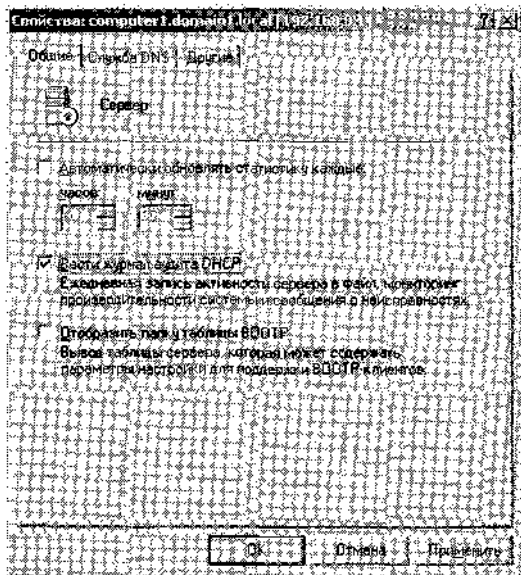 Свойства: computer1.domain1.local [192.168.0.1]
Общие Служба DNS Другие
Сервер
Автоматически обновлять статистику каждые:
часов минут
Вести журнал аудита DHCP
Ежедневная запись активности сервера в файл, мониторинг
производительности системы и сообщения о неисправностях.
Отобразить папку таблицы BOOTP
Вывод таблицы сервера, которая может содержать
параметры настройки для поддержки BOOTP-клиентов.
Ok Отмена Применить